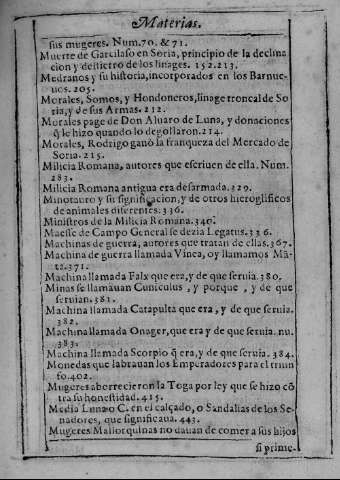 Materias.
sus mugeres. Num.70. & 71.
Muerte de Garcilaso en Soria, principio de la declina
cion y destierro de los linages. 152.213.
Medranos y su historia, incorporados en los Barnue-
uos. 205.
Morales, Somos, y Hondoneros, linage troncal de So
ria, y de sus Armas. 212.
Morales page de Don Aluaro de Luna, y donaciones
q̃ le hizo quando lo degollaron. 214.
Morales, Rodrigo ganò la franqueza del Mercado de
Soria. 215.
Milicia Romana, autores que escriuen de ella. Num.
283.
Milicia Romana antigua era desarmada. 329.
Minotauro y su significacion, y de otros hieroglificos
de animales diferentes. 336.
Ministros de la Milicia Romana. 340.
Maesse de Campo General se dezia Legatus. 336.
Machinas de guerra, autores que tratan de ellas. 367.
Machina de guerra llamada Vinea, oy llamamos Mã-
ta. 371.
Machina llamada Falx que era, y de que seruia. 380.
Minas se llamauan Cuniculus, y porque, y de que
seruian. 381.
Machina llamada Catapulta que era, y de que seruia.
382.
Machina llamada Onager, que era y de que seruia. nu.
383.
Machina llamada Scorpio q̃ era, y de que seruia. 384.
Monedas que labrauan los Emperadores para el triun
fo. 402.
Mugeres aborrecieron la Toga por ley que se hizo cõ
tra su honestidad. 415.
Media Luna o C. en el calçado, o Sandalias de los Se-
nadores, que significaua. 443.
Mugeres Mallorquinas no dauan de comer a sus hijos
si prime-